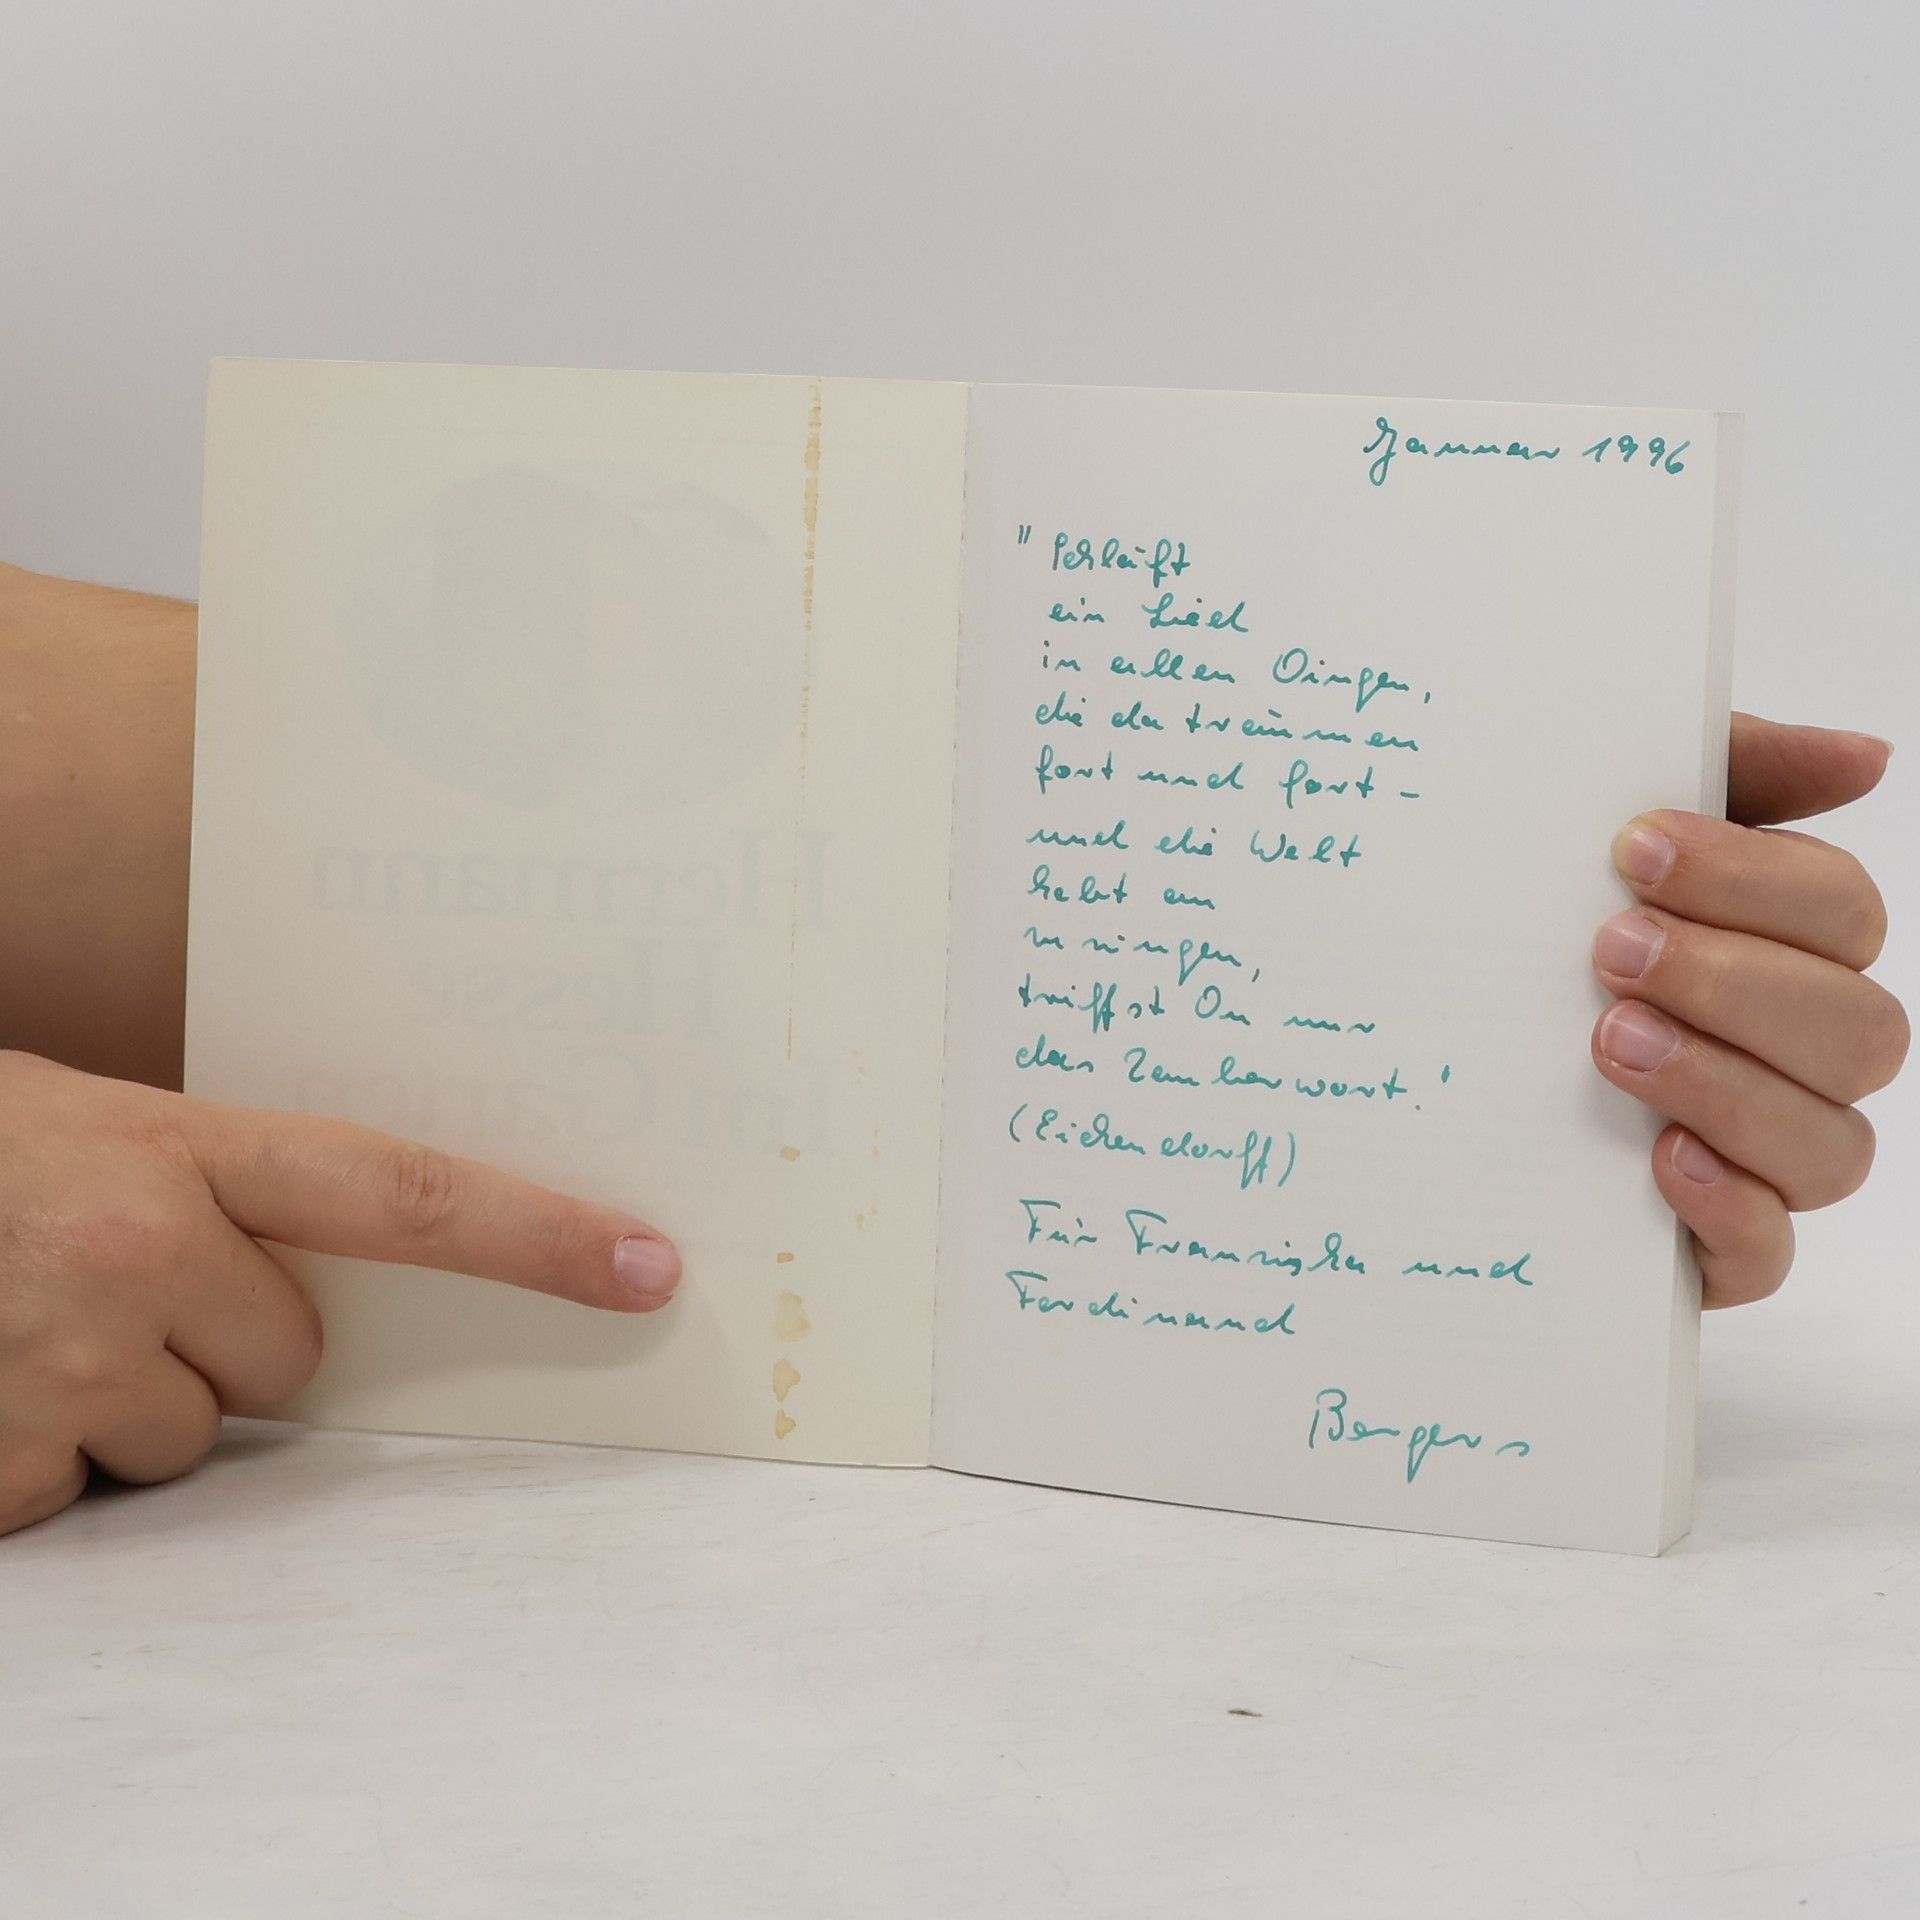 Januar 1996
" Schläft
ein Lied
in allen Dingen,
die da träumen
fort und fort -
und die Welt
hebt an
zu singen,
triffst Du nur
das Zauberwort. '
(Eichendorff)
Für Franziska und
Ferdinand
Bergers
Hermann
Hesse